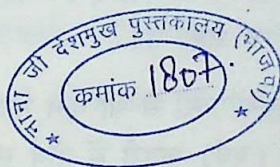 नाना जी देशमुख पुस्तकालय (भाजपा)
क्रमांक 1807.